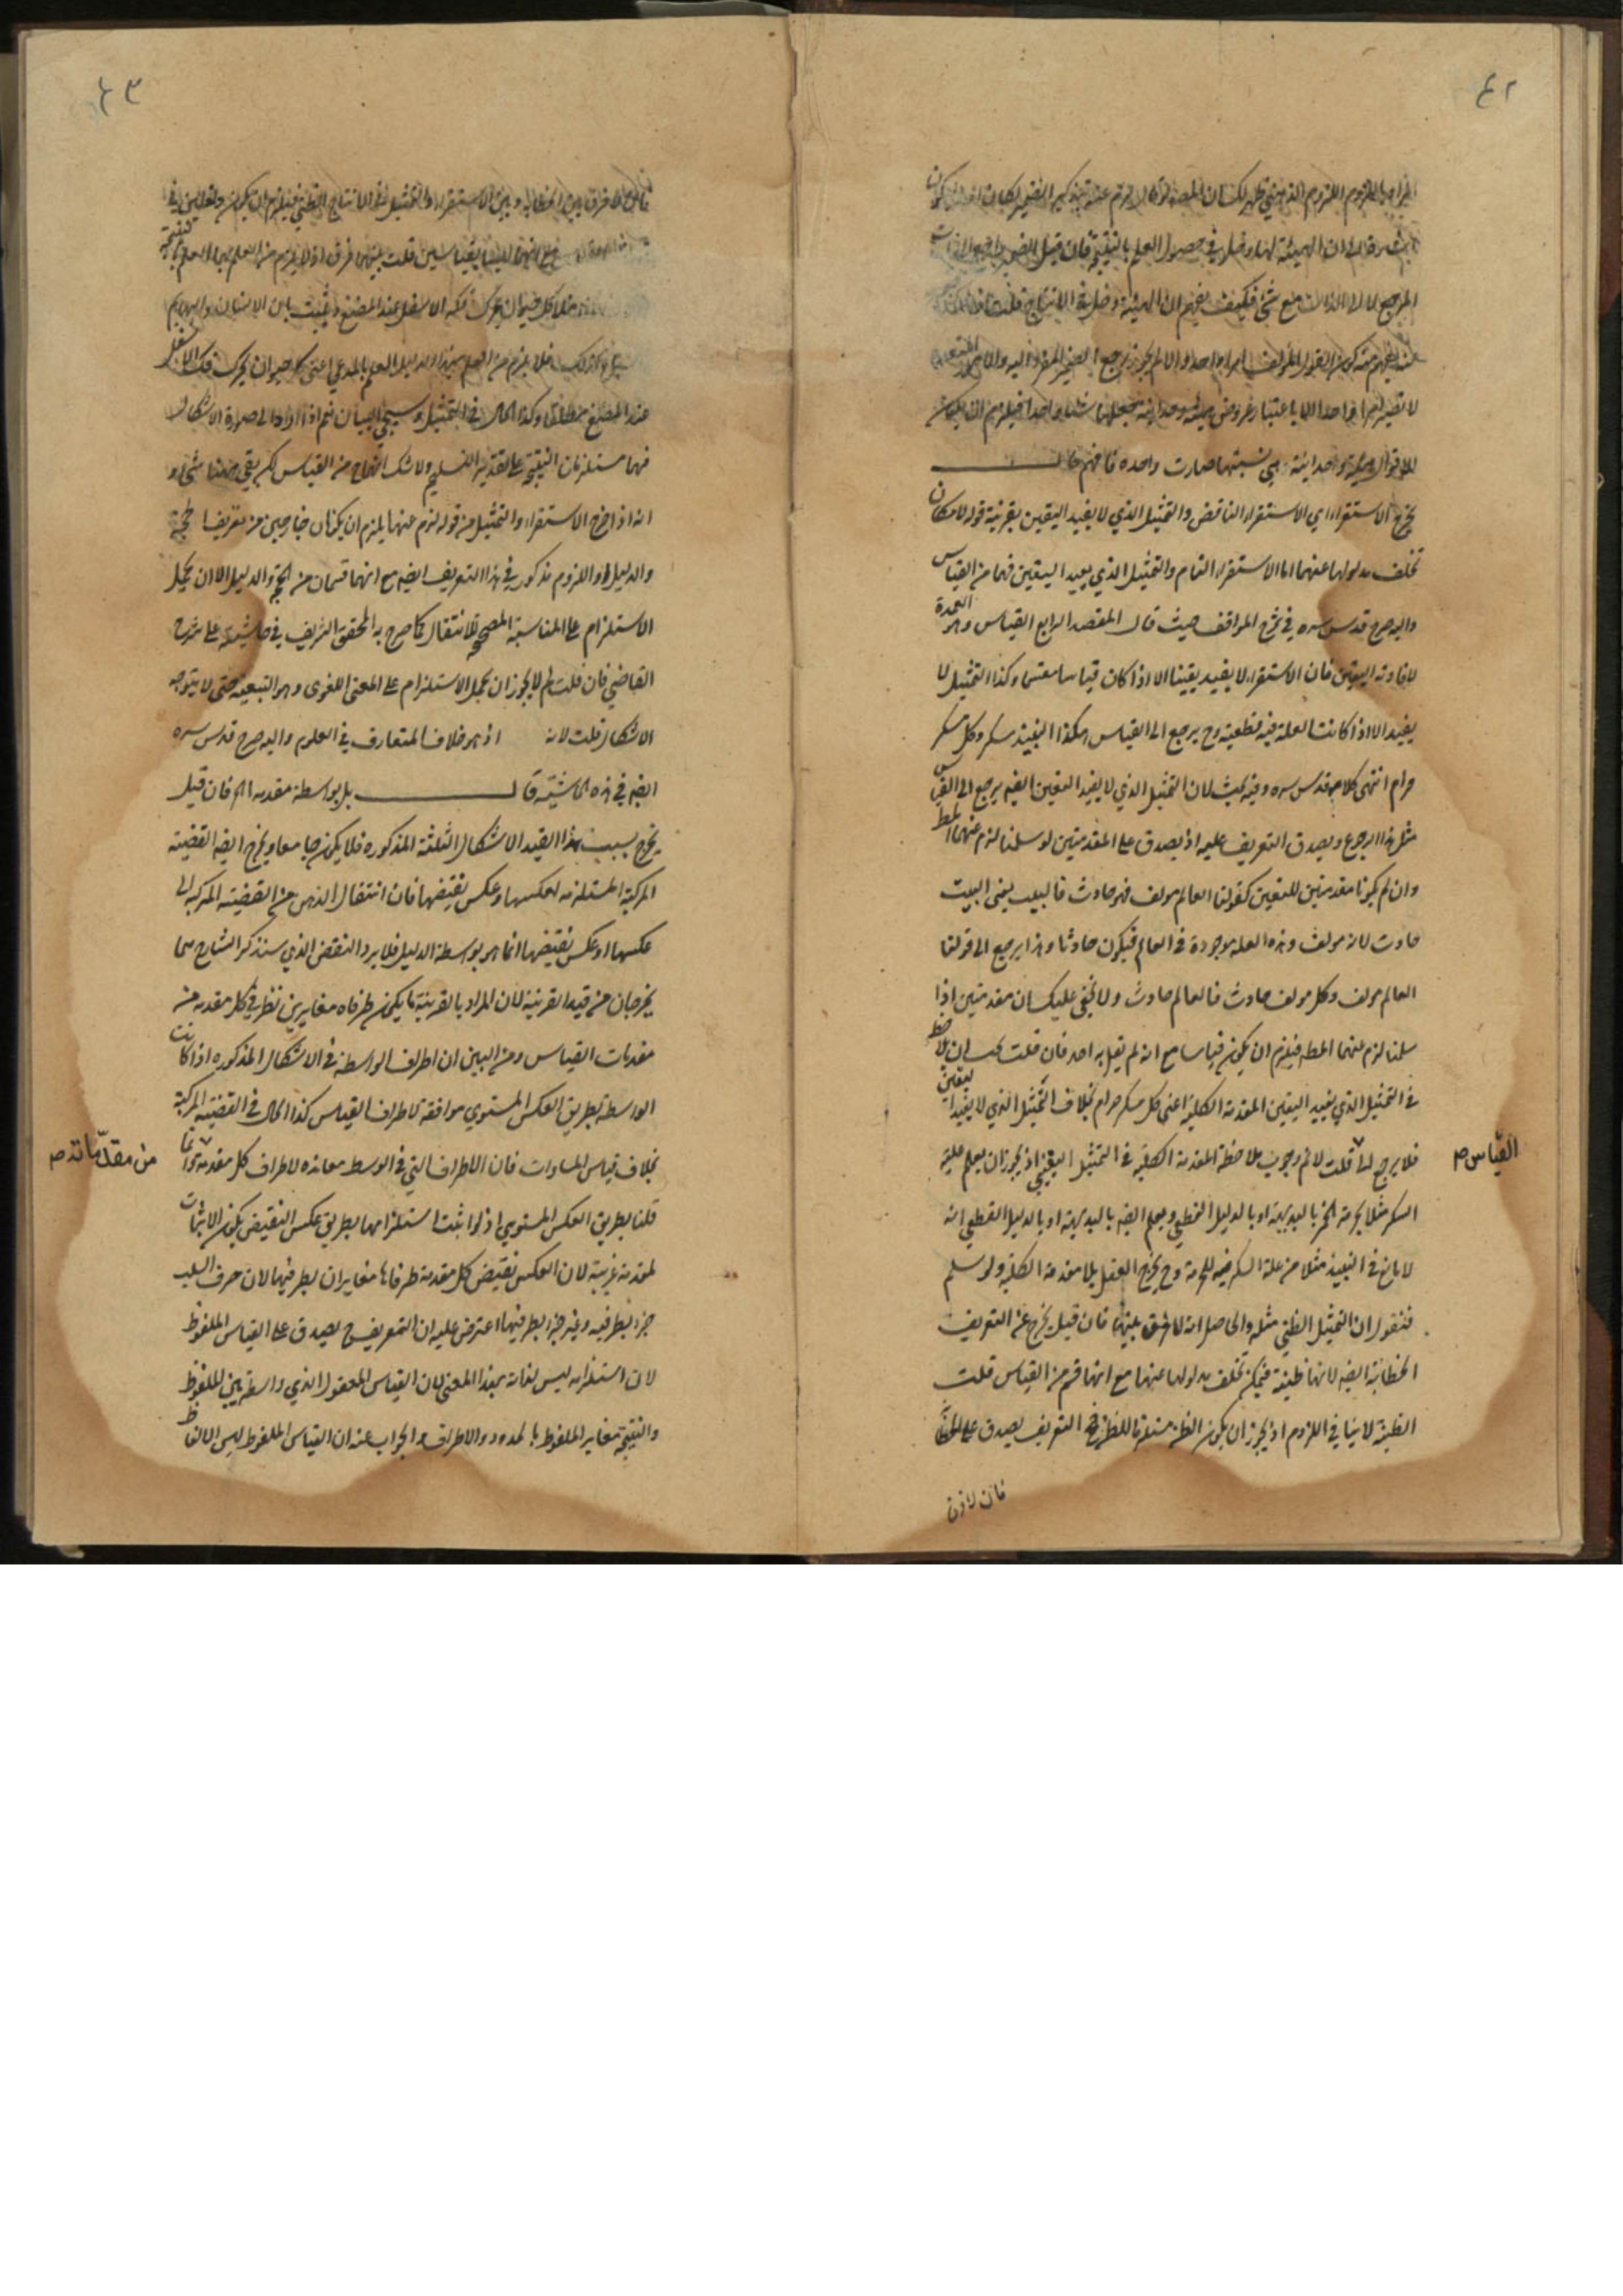 ٤٢
المراد باللزوم اللزوم
اشارة الى ان الهيئة لها دخل في حصول العلم بالنتيجة فان قيل الضمير راجع الى
المرجع لا الى الذات مع شئ فكيف يفهم ان الهيئة دخل في الانتاج قلت
يفهم من كون القول المؤلف امرا واحدا والا لم يجز رجع الضمير المفرد اليه والامور
لا تصير امرا واحدا الا باعتبار عروض هيئة وحدانية تجعلها شيئا واحدا فيلزم ان يكون
للاقوال هيئة وحدانية هي نسبتها صارت واحدة فافهم قال
يخرج الاستقراء اي الاستقراء الناقص والتمثيل الذي لا يفيد اليقين بقرينة قوله لامكان
تخلف مدلولها عنهما اما الاستقراء التام والتمثيل الذي يفيد اليقين فهما من القياس
واليه صرح قدس سره في شرح المواقف حيث قال المقصد الرابع القياس وهو العمدة
لافادته اليقين فان الاستقراء لا يفيد يقينا الا اذا كان قياسا مقسما وكذا التمثيل لا
يفيد الا اذا كانت العلة فيه قطعية وح يرجع الى القياس هكذا النبيذ مسكر وكل مسكر
حرام انتهى كلامه قدس سره وفيه بحث لان التمثيل الذي لا يفيد اليقين ايضا يرجع الى القياس
مثل هذا الرجوع ويصدق التعريف عليه اذ يصدق على المقدمتين لو سلمنا لزم عنهما المط
وان لم يكونا مقدمتين لليقين كقولنا العالم مولف فهو حادث فالبيت يعني البيت
حادث لانه مولف وهذه العلة موجودة في العالم فيكون حادثا وهذا يرجع الى قولنا
العالم مولف وكل مولف حادث فالعالم حادث ولا يخفى عليك ان مقدمتين اذا
سلمنا لزم عنهما المط فيلزم ان يكون قياسا مع انه لم يقل به احد فان قلت يجب ان يلاحظ
في التمثيل الذي يفيد اليقين المقدمة الكلية اعني كل مسكر حرام بخلاف التمثيل الذي لا يفيد اليقين
فلا يرجع الى قلت لانم وجوب ملاحظة المقدمة الكلية في التمثيل اليقيني اذ يجوز ان يعلم علية
القياس ص
السكر مثلا لحرمة الخمر بالبديهة او بالدليل القطعي ويعلم ايضا بالبديهة او بالدليل القطعي انه
لا مانع في النبيذ مثلا من علة السكر فيه للحرمة وح يخرج العقل بلا مقدمة الكلية ولو سلم
فنقول ان التمثيل الظني مثله والحاصل انه لا فرق بينهما فان قيل يخرج عن التعريف
الخطابة ايضا لانها ظنية فيمكن تخلف مدلولها عنهما مع انها قسم من القياس قلت
الظنية لا ينافي اللزوم اذ يجوز ان يكون الظن مستلزما للظن فح التعريف يصدق على الخطابة
فان لا فرق
٤٣
فان لا فرق بين الخطابة وبين الاستقراء والتمثيل في الانتاج الظني فيلزم ان يكون
مع انهما ليسا بقياسين قلت بينهما فرق اذ لا يلزم من العلم بهما العلم بالنتيجة
مثلا كل حيوان يحرك فكه الاسفل عند المضغ ويثبت بان الانسان والبهائم
كذلك فلا يلزم من العلم بهذا الدليل العلم بالمدعى اعني كل حيوان يحرك فكه الاسفل
عند المضغ مطلقا وكذا الحال في التمثيل وسيجئ البيان ثم اذا ارادا الى صورة الاشكال
فهما مستلزمان النتيجة على تقدير التسليم ولا شك انهما ح من القياس لكن بقي ههنا شئ وهو
انه اذا خرج الاستقراء والتمثيل من قوله لزم عنها يلزم ان يكونان خارجين من تعريف الحجة
والدليل اذ اللزوم مذكور في هذا التعريف ايضا مع انهما قسمان من الحجة والدليل الا ان يحمل
الاستلزام على المناسبة المصححة للانتقال كما صرح به المحقق الشريف في حاشيته على شرح
القاضي فان قلت لم لا يجوز ان يحمل الاستلزام على المعنى اللغوي وهو التبعية حتى لا يتوجه
الاشكال قلت لانه اذ هو خلاف المتعارف في العلوم واليه صرح قدس سره
ايضا في هذه الحاشية قال بل بواسطة مقدمة اه فان قيل
يخرج بسبب هذا القيد الاشكال الثلثة المذكورة فلا يكون جامعا ويخرج ايضا القضية
المركبة المستلزمة لعكسها وعكس نقيضها فان انتقال الذهن من القضية المركبة الى
عكسها او عكس نقيضها انما هو بواسطة الدليل فلا يرد النقض الذي سنذكر الشارح بهما
يخرجان من قيد القرينة لان المراد بالقرينة ما يكون طرفاه مغايرين نظر في كل مقدمة من
مقدمات القياس ومن البين ان اطراف الواسطة في الاشكال المذكورة اذا كانت
الواسطة بطريق العكس المستوي موافقة لاطراف القياس كذا الحال في القضية المركبة
بخلاف قياس المساوات فان الاطراف التي في الوسط معاندة لاطراف كل مقدمة وانما
من مقدماته ص
قلنا بطريق العكس المستوي اذ لو اثبت استلزامها بطريق عكس النقيض يكون الاثبات
لمقدمة غريبة لان العكس نقيض كل مقدمة طرفاها مغايران بطرفيها لان حرف السلب
جزء بطرفيه وغير جزء بطرفيها اعترض عليه ان التعريف ح يصدق على القياس الملفوظ
لان استلزامه ليس لذاته بهذا المعنى لان القياس المعقول الذي واسطة بين الملفوظ
والنتيجة مغاير الملفوظ بالحدود والاطراف والجواب عنه ان القياس الملفوظ ليس الالفاظ